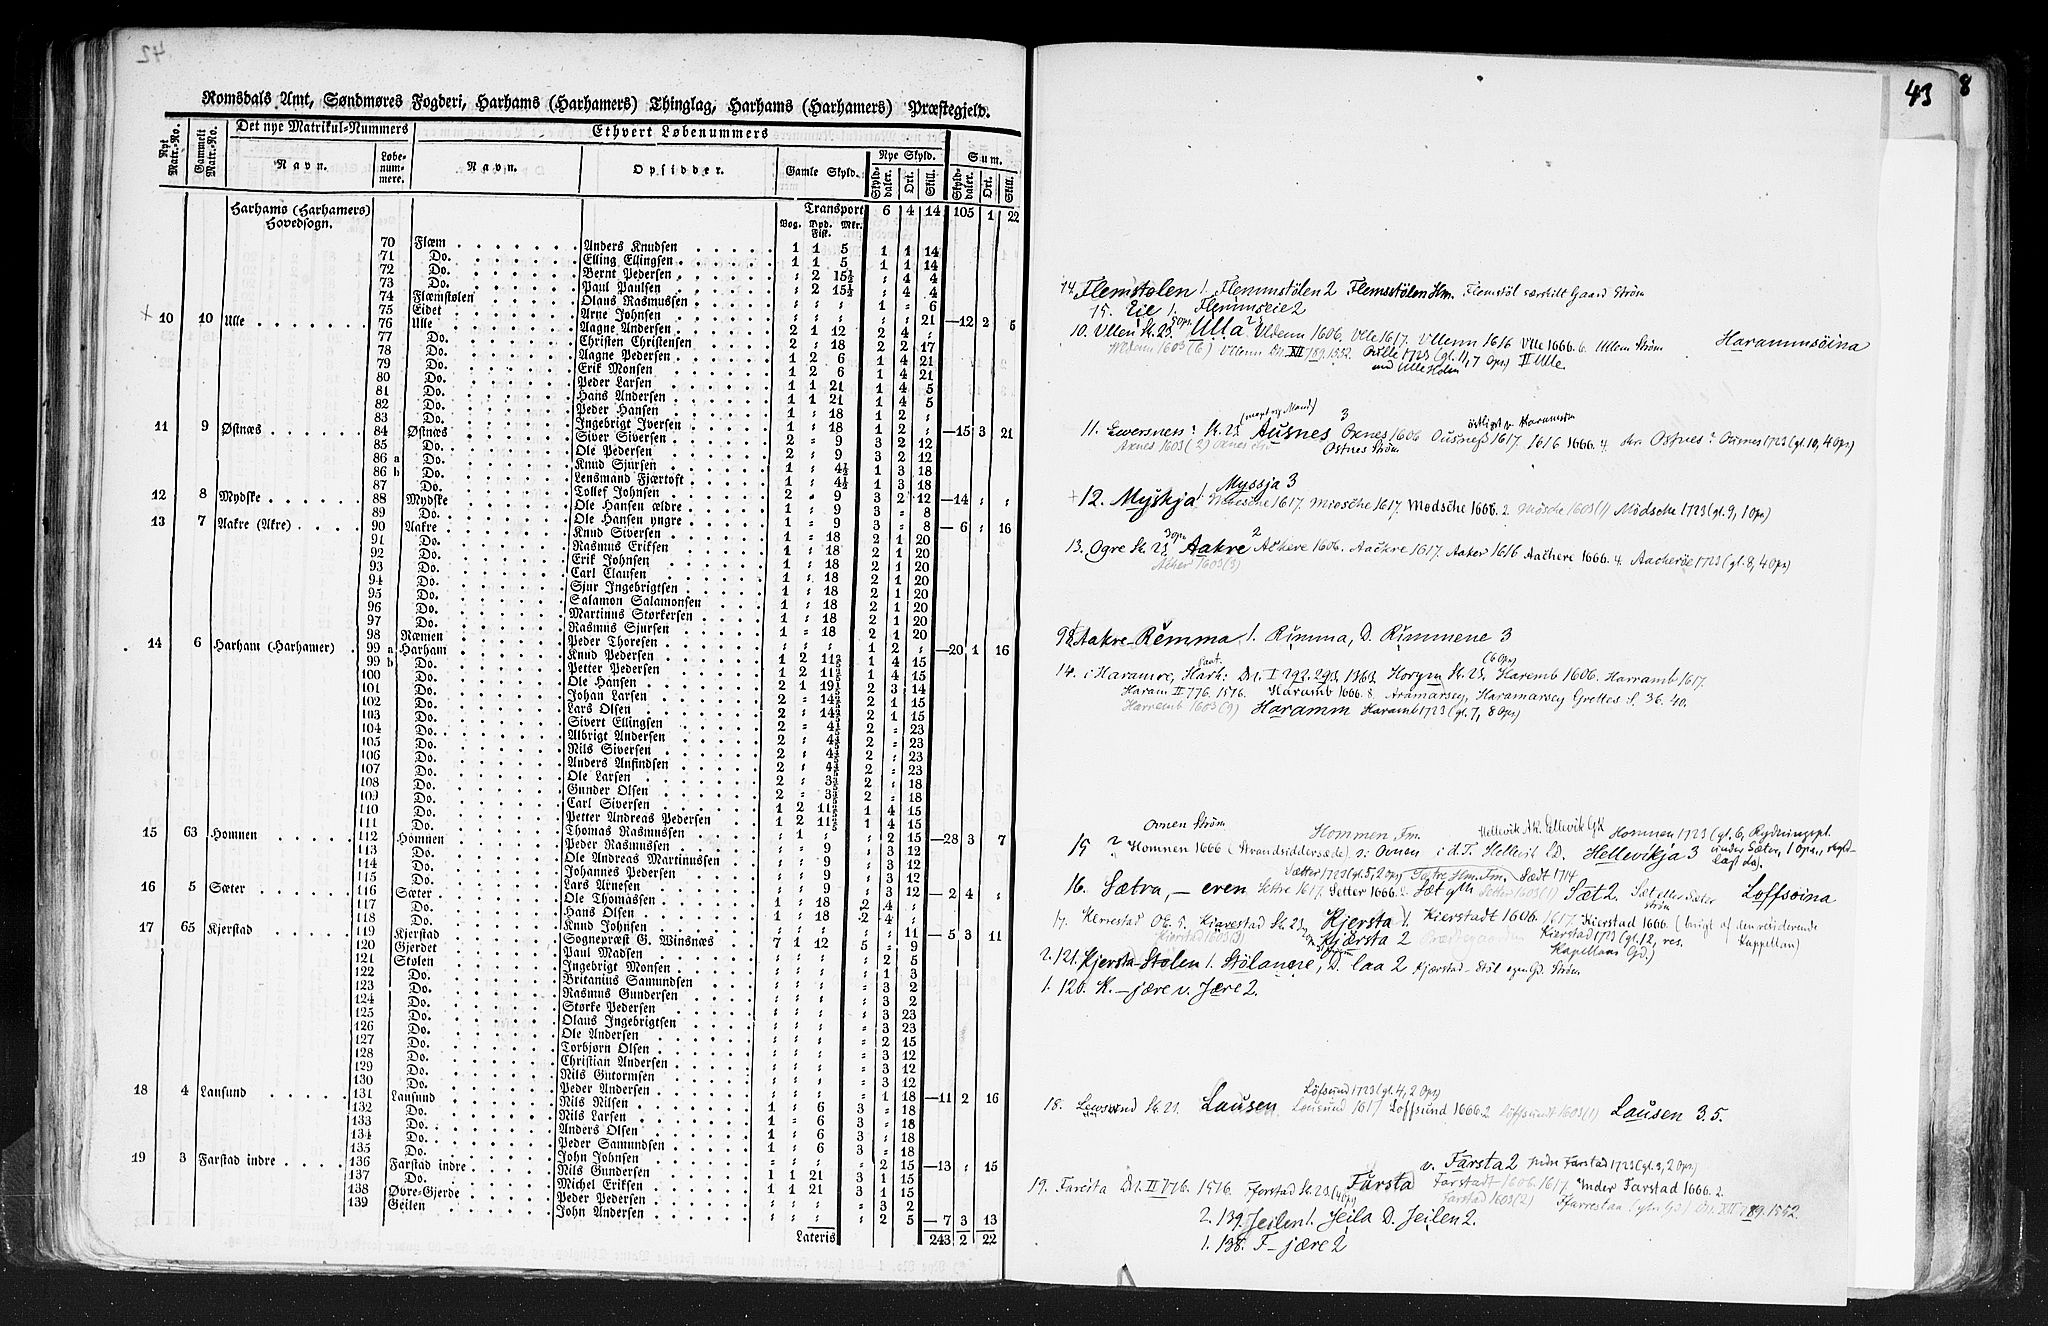 42
Romsdals Amt, Søndmøres Fogderi, Harhams (Harhamers) Thinglag, Harhams (Harhamers) Præstegjeld.
Nyt Matr.-No. Gammelt Matr.-No. Det nye Matrikul-Nummers Ethvert Løbenummers
Navn. Løbenummere. Navn. Opsidder. Gamle Skyld. Nye Skyld. Sum.
Skylddaler. Ort. Skill. Skylddaler. Ort. Skill.
Harhams (Harhamers) Hovedsogn. Transport 6 4 14 105 1 22
Vog. Pd. Fisk. Mkr.
70 Flæm Anders Knudsen 1 1 5 1 1 14
71 Do. Elling Ellingsen 1 1 5 1 1 14
72 Do. Bernt Pedersen " 2 15½ " 4 4
73 Do. Paul Paulsen " 2 15½ " 4 4
74 Flæmstolen Olaus Rasmussen 1 " 6
75 Eidet Arne Johnsen 21 —12 2 5
10 10 Ulle 76 Ulle Aagne Andersen 2 1 12 2 4 "
77 Do. Christen Christensen 2 " 18 2 2 17
78 Do. Aagne Pedersen 1 2 6 1 4 21
79 Do. Erik Monsen 1 2 6 1 4 21
80 Do. Peder Larsen 1 1 21 1 4 5
81 Do. Hans Andersen 1 1 21 1 4 5
82 Do. Peder Hansen 1 " 18 1 2 "
83 Do. Ingebrigt Iversen 1 " 18 1 2 " —15 3 21
11 9 Østnæs 84 Østnæs Siver Siversen 2 " 9 3 2 12
85 Do. Ole Pedersen 2 " 9 3 2 12
86 a Do. Knud Sjursen 1 " 4½ 1 3 18
86 b Do. Lensmand Fjærtoft 1 " 4½ 1 3 18
87 Do. Tollef Johnsen 2 " 9 3 2 12 —14 " "
12 8 Mydske 88 Mydske Ole Hansen ældre 1 " 9 3 " 8
89 Do. Ole Hansen yngre 1 " 9 3 " 8 — 6 " 16
13 7 Aakre (Akre) 90 Aakre Knud Siversen 1 " 18 2 1 20
91 Do. Rasmus Eriksen 1 " 18 2 1 20
92 Do. Erik Johnsen 1 " 18 2 1 20
93 Do. Carl Clausen 1 " 18 2 1 20
94 Do. Sjur Ingebrigtsen 1 " 18 2 1 20
95 Do. Salamon Salamonsen 1 " 18 2 1 20
96 Do. Martinus Størkersen 1 " 18 2 1 20
97 Do. Rasmus Sjursen 1 " 18 2 1 20
98 Næmen Peder Thoresen " " " 1 2 " —20 1 16
14 6 Harham (Harhamer) 99 a Harham Knud Pedersen 1 2 11 1 4 15
99 b Do. Petter Pedersen 1 2 11 1 4 15
100 Do. Ole Hansen 2 1 19 2 3 14
101 Do. Johan Larsen 2 " 14 2 1 15
102 Do. Lars Olsen 2 " 14 2 1 15
103 Do. Sivert Ellingsen 2 " 4 2 " 23
104 Do. Albrigt Andersen 2 " 4 2 " 23
105 Do. Nils Siversen 2 " 4 2 " 23
106 Do. Anders Anfindsen 2 " 4 2 " 23
107 Do. Ole Larsen 2 " 3 2 " 18
108 Do. Gunder Olsen 2 " 3 2 " 18
109 Do. Carl Siversen 1 2 11 1 4 15
110 Do. Petter Andreas Pedersen 1 2 11 1 4 15
111 Do. Thomas Rasmussen " 1 " " 2 15 —28 3 7
15 63 Homnen 112 Homnen Peder Rasmussen " " 9 3 12
113 Do. Ole Andreas Martinussen " " 9 3 12
114 Do. Johannes Pedersen " " 9 3 12
115 Do. Lars Arnesen " " 9 3 12 — 2 4 "
16 5 Sæter 116 Sæter Ole Thomassen 1 " 18 2 4 "
117 Do. Hans Olsen 1 " 18 2 4 "
118 Do. Knud Johnsen " " " 11 — 5 3 11
17 65 Kjerstad 119 Kjerstad Sognepræst G. Winsnæs 7 1 12 5 " 9
120 Gjerdet Paul Madsen " " " " 2 5
121 Stolen Ingebrigt Monsen " " " " 1 3
122 Do. Britanius Samundsen " " " " 3 2
123 Do. Rasmus Gundersen " " " " 3 2
124 Do. Størke Pedersen " " " " 3 23
125 Do. Olaus Ingebrigtsen " " " " 3 23
126 Do. Ole Andersen " " " " 2 15
127 Do. Torbjørn Olsen " " " " 3 12
128 Do. Christian Andersen " " " " 3 12
129 Do. Nils Gutormsen " " " " 3 12
130 Do. Peder Andersen " " " " 1 18 —11 2 16
18 4 Lausund 131 Lausund Nils Nilsen 1 " 6 3 " 18
132 Do. Nils Larsen 1 " 6 3 " 18
133 Do. Anders Olsen 1 " 6 3 " 18
134 Do. Peder Samundsen 1 " 6 3 " 18
135 Do. John Johnsen " " " " 2 15 —13 " 15
19 3 Farstad indre 136 Farstad indre Nils Gundersen 1 1 21 3 1 15
137 Do. Michel Eriksen 1 1 21 3 1 15
138 Øvre-Gjerde Peder Pedersen " " " " 3 2
139 Geilen John Andersen " " " " 2 5 — 7 3 13
Lateris 243 2 22
43 8
74. Flemstolen 1. Flemmstölen 2 Flemsstölen Hm. Flemstöl særskilt Gaard Strøm
75. Eie 1. Flemmseie 2
10. Ullen Sk. 23. Ulla 2 Uldenn 1606. Ulle 1617. Ullenn 1616 Ulle 1666. 6. Ullem Strøm Haramnsöina
Uldenn 1603 (6) Ullenn Dr. XII 789. 1552. Ulle 1723 (gl. 11, 7 Ops) II Ulle
11. Eversness: Sk. 23. Ausnes 3 Oxnes 1606 Ousness 1617. 1616 1666. 4. Ostnes? Oxenes 1723 (gl. 10, 4 Ops)
Axnes 1603 (2) Ostnes Strøm
12. Myskja 1 Myssja 3 Miosche 1617. Modsche 1666. 2. Mösche 1603 (1) Modscke 1723 (gl. 9, 1 Ops)
13. Ogre Sk. 23. Aakre 2 Achere 1606. Aachre 1617. Aaker 1616 Aachere 1666. 4. Aacheröe 1723 (gl. 8, 4 Ops)
Acher 1603 (3)
98 Aakre-Remma 1. Rimma, D. Rimmene 3
14. i Haramre, Harh: Dr. I 292. 293. 1363. Horgyn Sk. 23. Haremb 1606. Harramb 1617.
Haram II 776. 1576. Haramb 1666. 8. Aramarsey, Haramarsey Grottes S. 36. 40.
Harremb 1603 (9) Haramm Haramb 1723 (gl. 7, 8 Ops)
Ovnen Strøm Hommen Fm. Hellevik AK. Ellevik GK Homnen 1723 (gl. 6, Rydningspl.
15 ? Homnen 1666 (Strandsiddersæde) ɔ: Ovnen i d. T. Hellevik Ed. Hellevikja 3 under Sæter, 1 Ops., skyldlagt da).
Sætter 1723 (gl. 5, 2 Ops) Sædt 1714
16. Sætra, - eren Settre 1617. Setter 1666. 2. Sæt gtn Setter 1603 (1) Sæt 2. Sæt eller Sæter Strøm Loffsöina
17. Kerrestad OE. 5. Kiærestad Sk. 23. Kjersta 1. Kierstadt 1606. 1617. Kierstad 1666 (brugt af den residerende Kappellan)
Kierstad 1603 (3) Kjærsta 2 Præstegaarden Kierstad 1723 (gl. 12, res. Kapellans Gd.)
2. 121. Kjersta-Stolen 1. Stölanere, D. laa 2 Kjærstad-Stöl egen Gd. Strøm
1. 120. K.-jære v. Jære 2.
Löfsund 1723 (gl. 4, 2 Ops)
18. Lewsund Sk. 23. Lausen Lausund 1617 Loffsund 1666. 2 Löffsundt 1603 (1) Lausen 3. 5.
v. Farsta 2 Indre Farstad 1723 (gl. 3, 2 Ops)
19. Faresta Dr. II 776. 1576. Fforstad Sk. 23. (4 Ops) Farsta Farstadt 1606. 1617. Inder Farstad 1666. 2.
Farstad 1603 (2) Ffarrestaa Dr. XII 789. 1552.
2. 139. Jeilen 1. Jeila D. Jeilen 2.
1. 138. F-jære 2